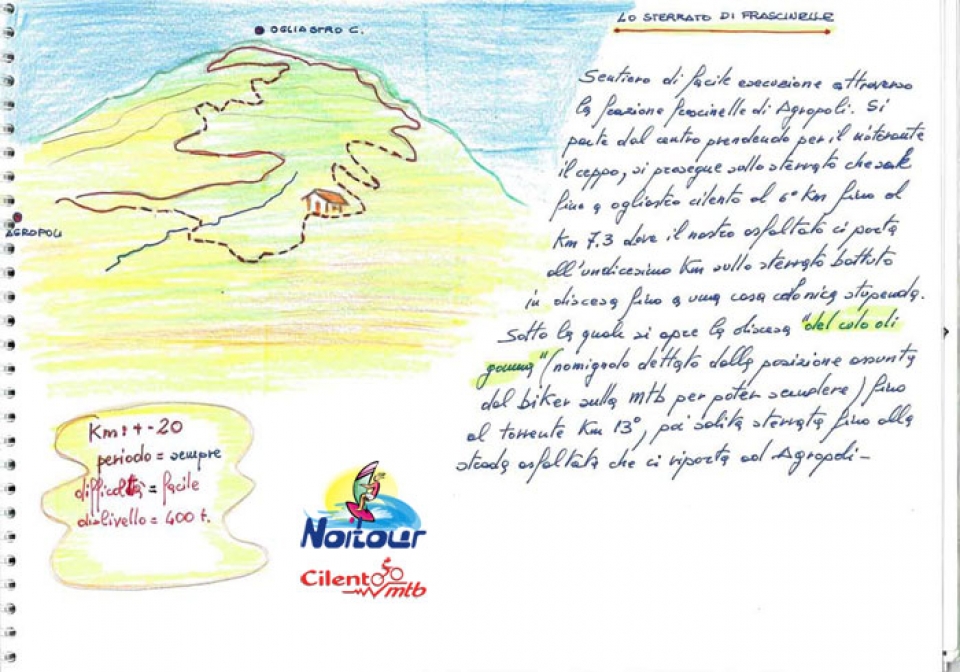 LO STERRATO DI FRASCINELLE
OGLIASTRO C.
AGROPOLI
Sentiero di facile esecuzione attraverso
la frazione frascinelle di Agropoli. Si
parte dal centro prendendo per il ristorante
il ceppo, si prosegue sullo sterrato che sale
fino a ogliastro cilento al 6° Km fino al
Km 7.3 dove il nastro asfaltato ci porta
all'undicesimo Km sullo sterrato battuto
in discesa fino a una casa colonica stupenda.
Sotto la quale si apre la discesa "del culo di
gomma" (nomignolo dettato dalla posizione assunta
dal biker sulla mtb per poter scendere) fino
al torrente Km 13°, poi salita sterrata fino alla
strada asfaltata che ci riporta ad Agropoli-
Km: +- 20
periodo = sempre
difficoltà = facile
dislivello = 400 t.
Noitour
Cilento
mtb